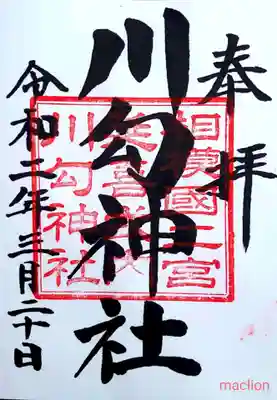 奉拝
川勾神社
令和二年三月二十日
相模國二宮
延喜式内
川勾神社
maclion